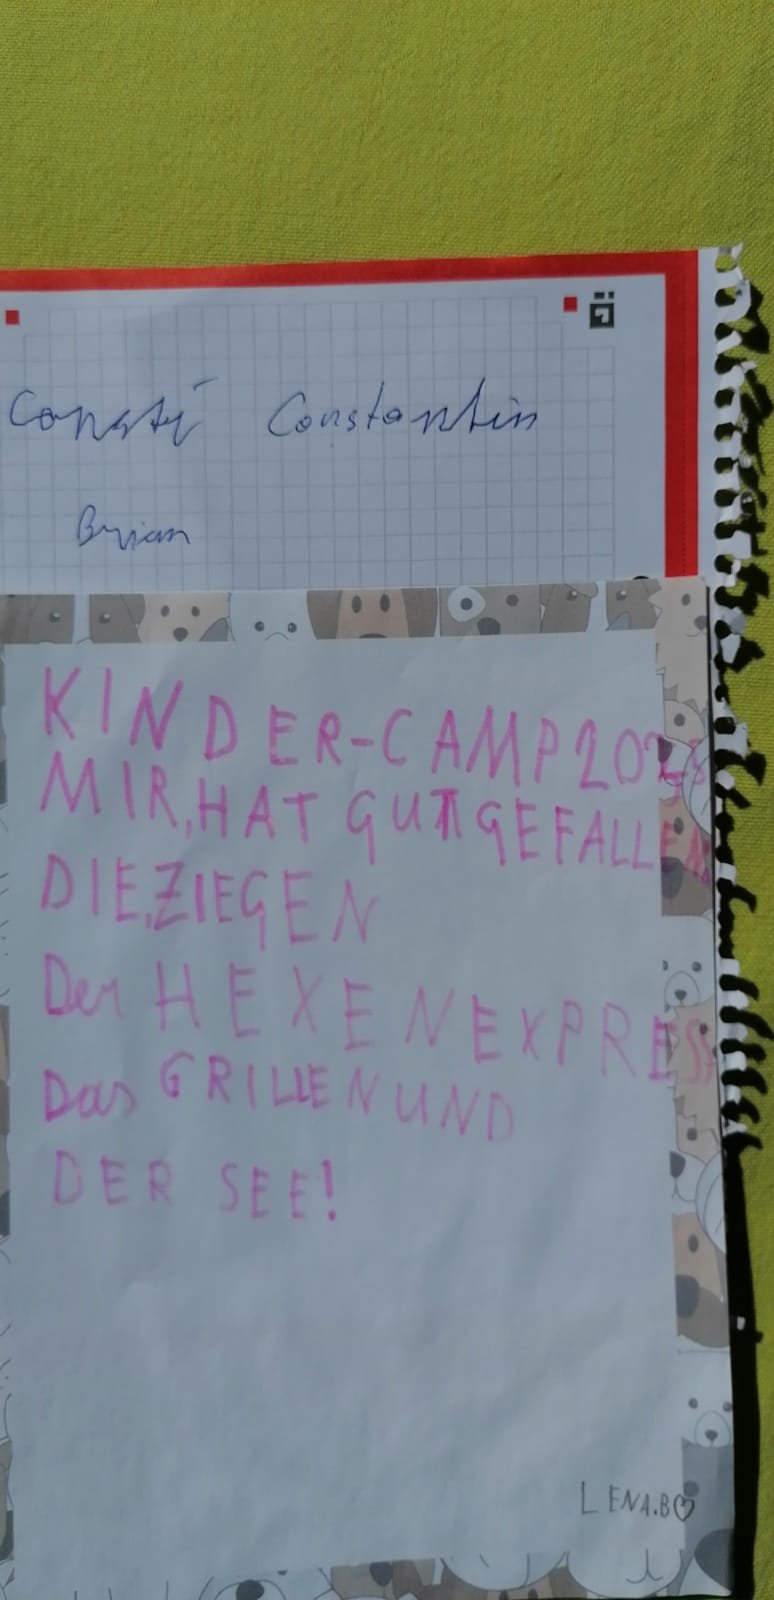 Consti Constantin
Brian
KINDER-CAMP 202
MIR, HAT GUT GEFALLEN
DIE, ZIEGEN
Der HEXENEXPRESS
Das GRILLEN UND
DER SEE!
LENA.B♡